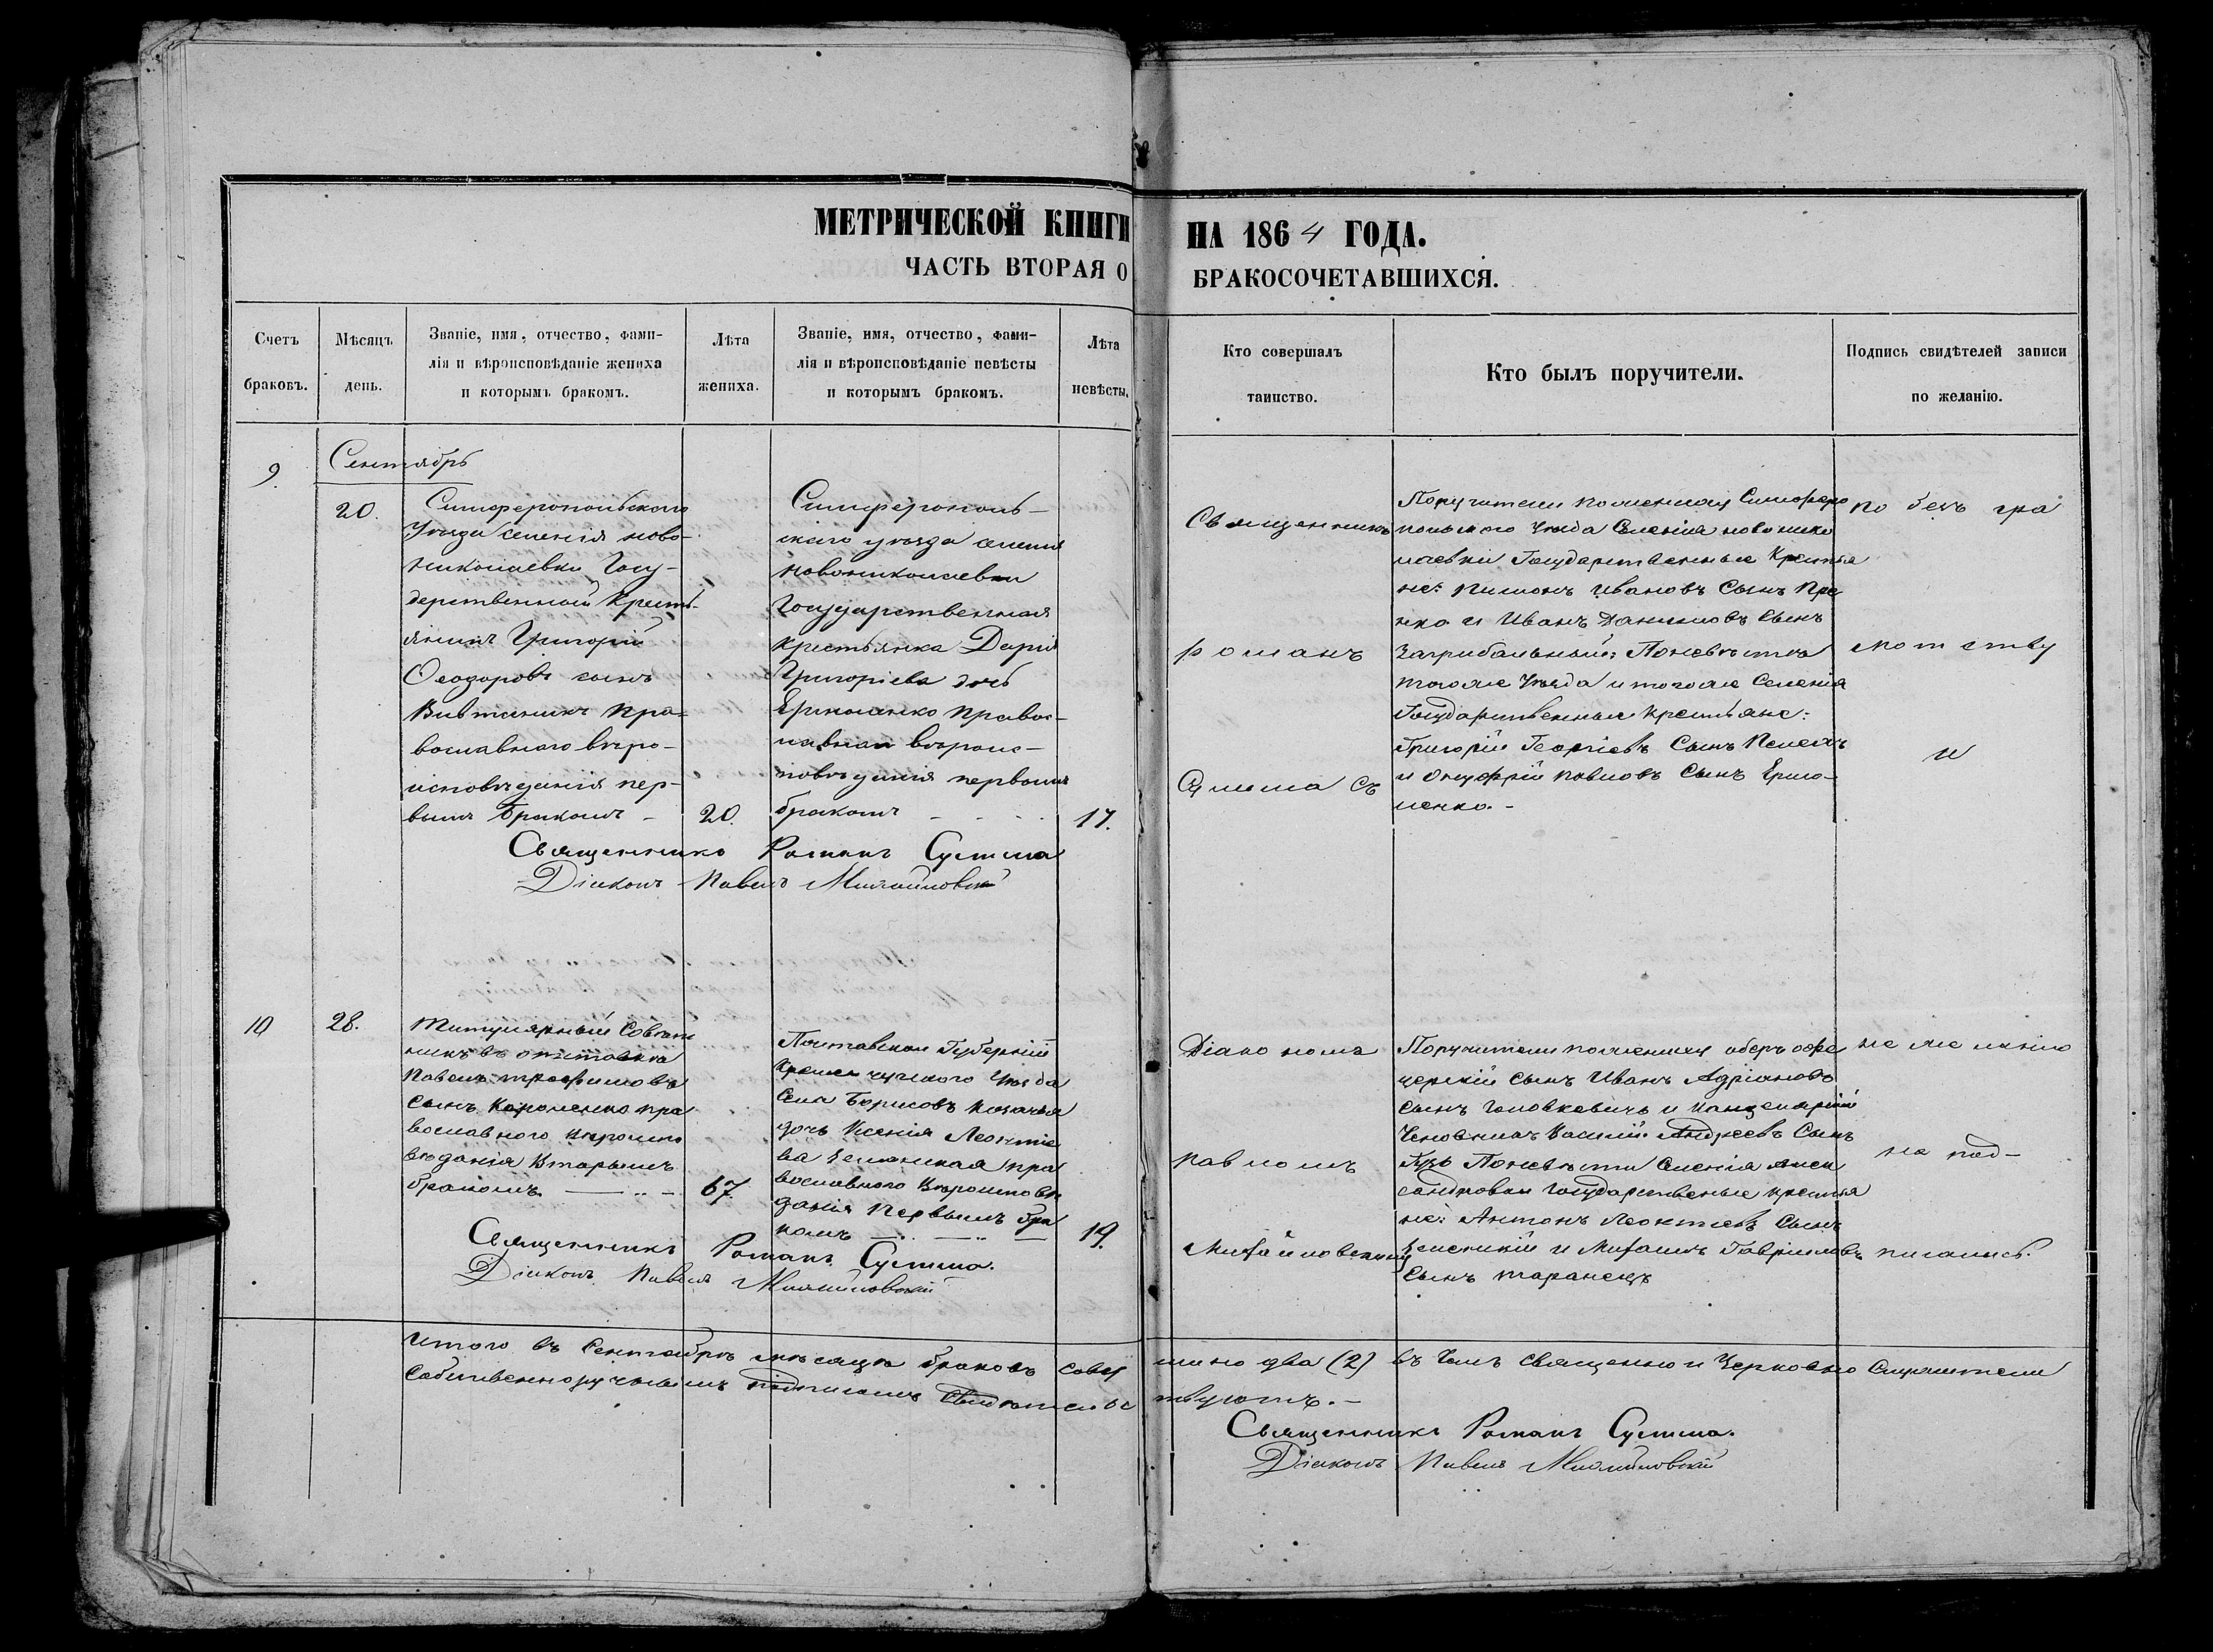 МЕТРИЧЕСКОЙ КНИГИ НА 1864 ГОДА.
ЧАСТЬ ВТОРАЯ О БРАКОСОЧЕТАВШИХСЯ.
Счетъ браковъ.
Мѣсяцъ день.
Званіе, имя, отчество, фами-
лія и вѣроисповѣданіе жениха
и которымъ бракомъ.
Лѣта жениха.
Званіе, имя, отчество, фами-
лія и вѣроисповѣданіе невѣсты
и которымъ бракомъ.
Лѣта невѣсты.
Кто совершалъ
таинство.
Кто былъ поручители.
Подпись свидѣтелей записи
по желанію.
9.
Сентябрь
20.
Симферопольскаго
Уѣзда селенія ново-
николаевки Госу-
дерственный Кресть-
янинъ Григорій
Ѳеодоровъ сынъ
пра-
вославнаго вѣро-
исповѣданія пер-
вымъ бракомъ -
20.
Симферополь-
скаго уѣзда селенія
Новониколаевки
Государственная
крестьянка Дарія
Григоріева дочь
Ермоленко правос-
лавнаго вѣроис-
повѣданія первымъ
бракомъ
17.
Священникъ Романъ Сулима
Діаконъ Павелъ Михайловскій
Священникъ
романъ
Сулима съ
Поручители по женихѣ Симферо
польскаго Уѣзда Селенія новонико
лаевки Государственные Крестья
не: Пименъ Ивановъ Сынъ
и Иванъ Даниловъ Сынъ
Загрибельный: По невѣстѣ
тогоже Уѣзда и тогоже Селенія
Государственные крестьяне:
Григорій Георгіевъ Сынъ
и Онуфрій Павловъ Сынъ Ермо-
ленко.-
по безъ гра
мотству
и
10
28.
Титулярный Совѣт
никъ въ отставкѣ
Павелъ трофимовъ
Сынъ Короленко пра
вославнаго вѣроиспо
вѣданія Вторымъ
бракомъ.
67.
Полтавской Губерніи
Кременчугскаго Уѣзда
Села Борисовъ козачья
дочь Ксенія Леонтіе
ва Зеленская пра
вославнаго Вѣроисповѣ
данія Первымъ бра
комъ
19.
Священникъ Романъ Сулима.
Діаконъ Павелъ Михайловскій
Діакономъ
Павломъ
Михайловскимъ
Поручители по женихѣ оберъ офи
церскій сынъ Иванъ Адріановъ
Сынъ Головкевичъ и Канцелярскій
Чиновникъ Василій Андреевъ Сынъ
По невѣсти Селенія Алек
сандровки Государственые крестья
не: Антонъ Леонтіевъ Сынъ
Зеленскій и Михаилъ Гавриловъ
Сынъ таранецъ
не желанію
не под-
писались.
Итого въ Сентябрѣ мѣсяцѣ браковъ совер шено два (2) въ чемъ священно и Церковно Служители
Собственноручнымъ подписомъ Свидѣтельс твуютъ.-
Священникъ Романъ Сулима.
Діаконъ Павелъ Михайловскій